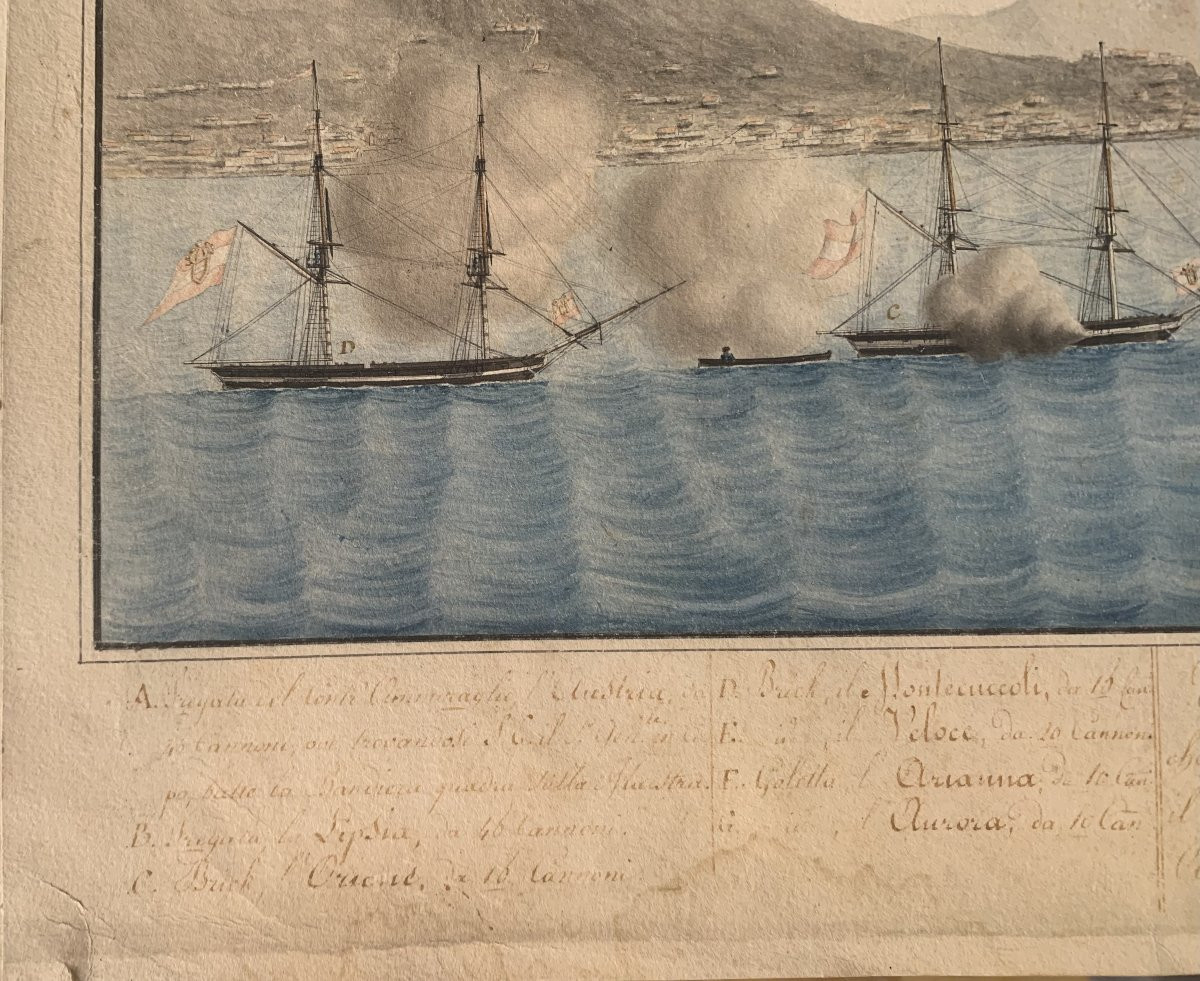 D
C
A. Fregata del Contr'Ammiraglio l'Austria, da
Cannoni, ove trovandosi S. E. il
po, batte la Bandiera quadra Maestra.
B. Fregata, la Lipsia, da 40 Cannoni.
C. Brick, l'Orione, da 16 Cannoni
D. Brick, il Montecuccoli, da 16 Can
E. il Veloce, da 10 Cannon.
F. Goletta, l'Arianna, da 10 Can
G. l'Aurora, da 10 Can